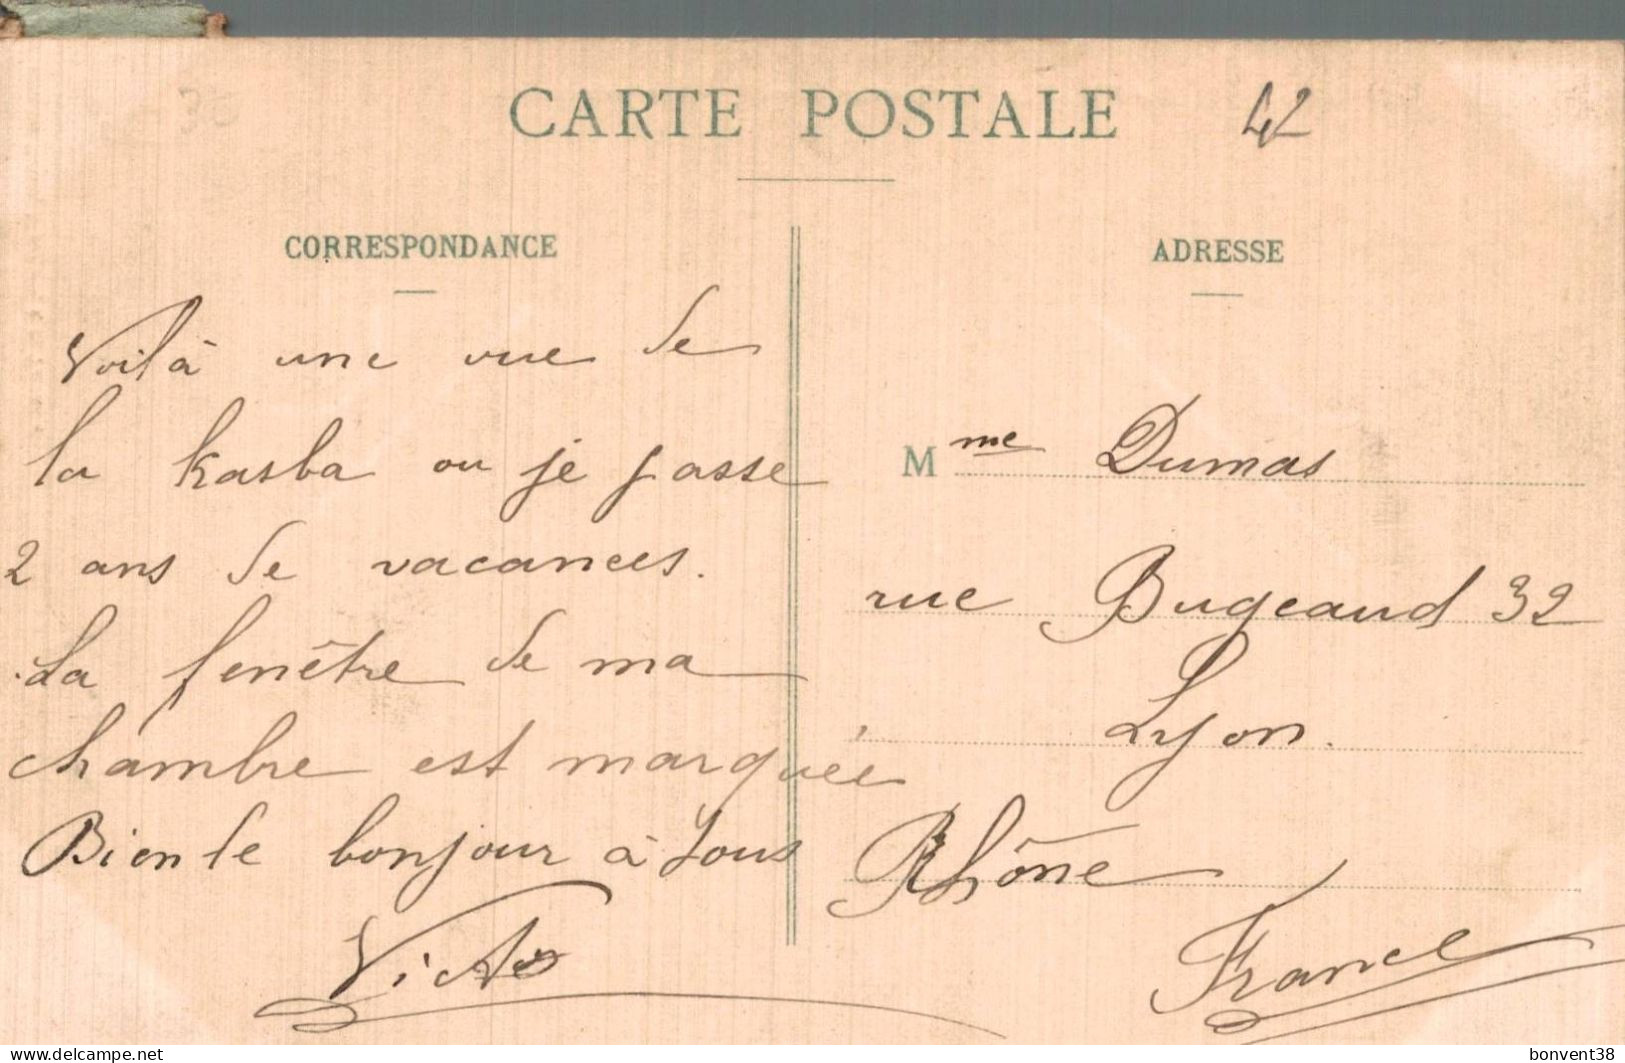 CARTE POSTALE
42
CORRESPONDANCE
Voilà une vue de
la kasba ou je passe
2 ans de vacances.
La fenêtre de ma
chambre est marquée
Bien le bonjour à tous
ADRESSE
Mme Dumas
rue Bugeaud 32
Lyon.
Rhône
France
www.delcampe.net
bonvent38